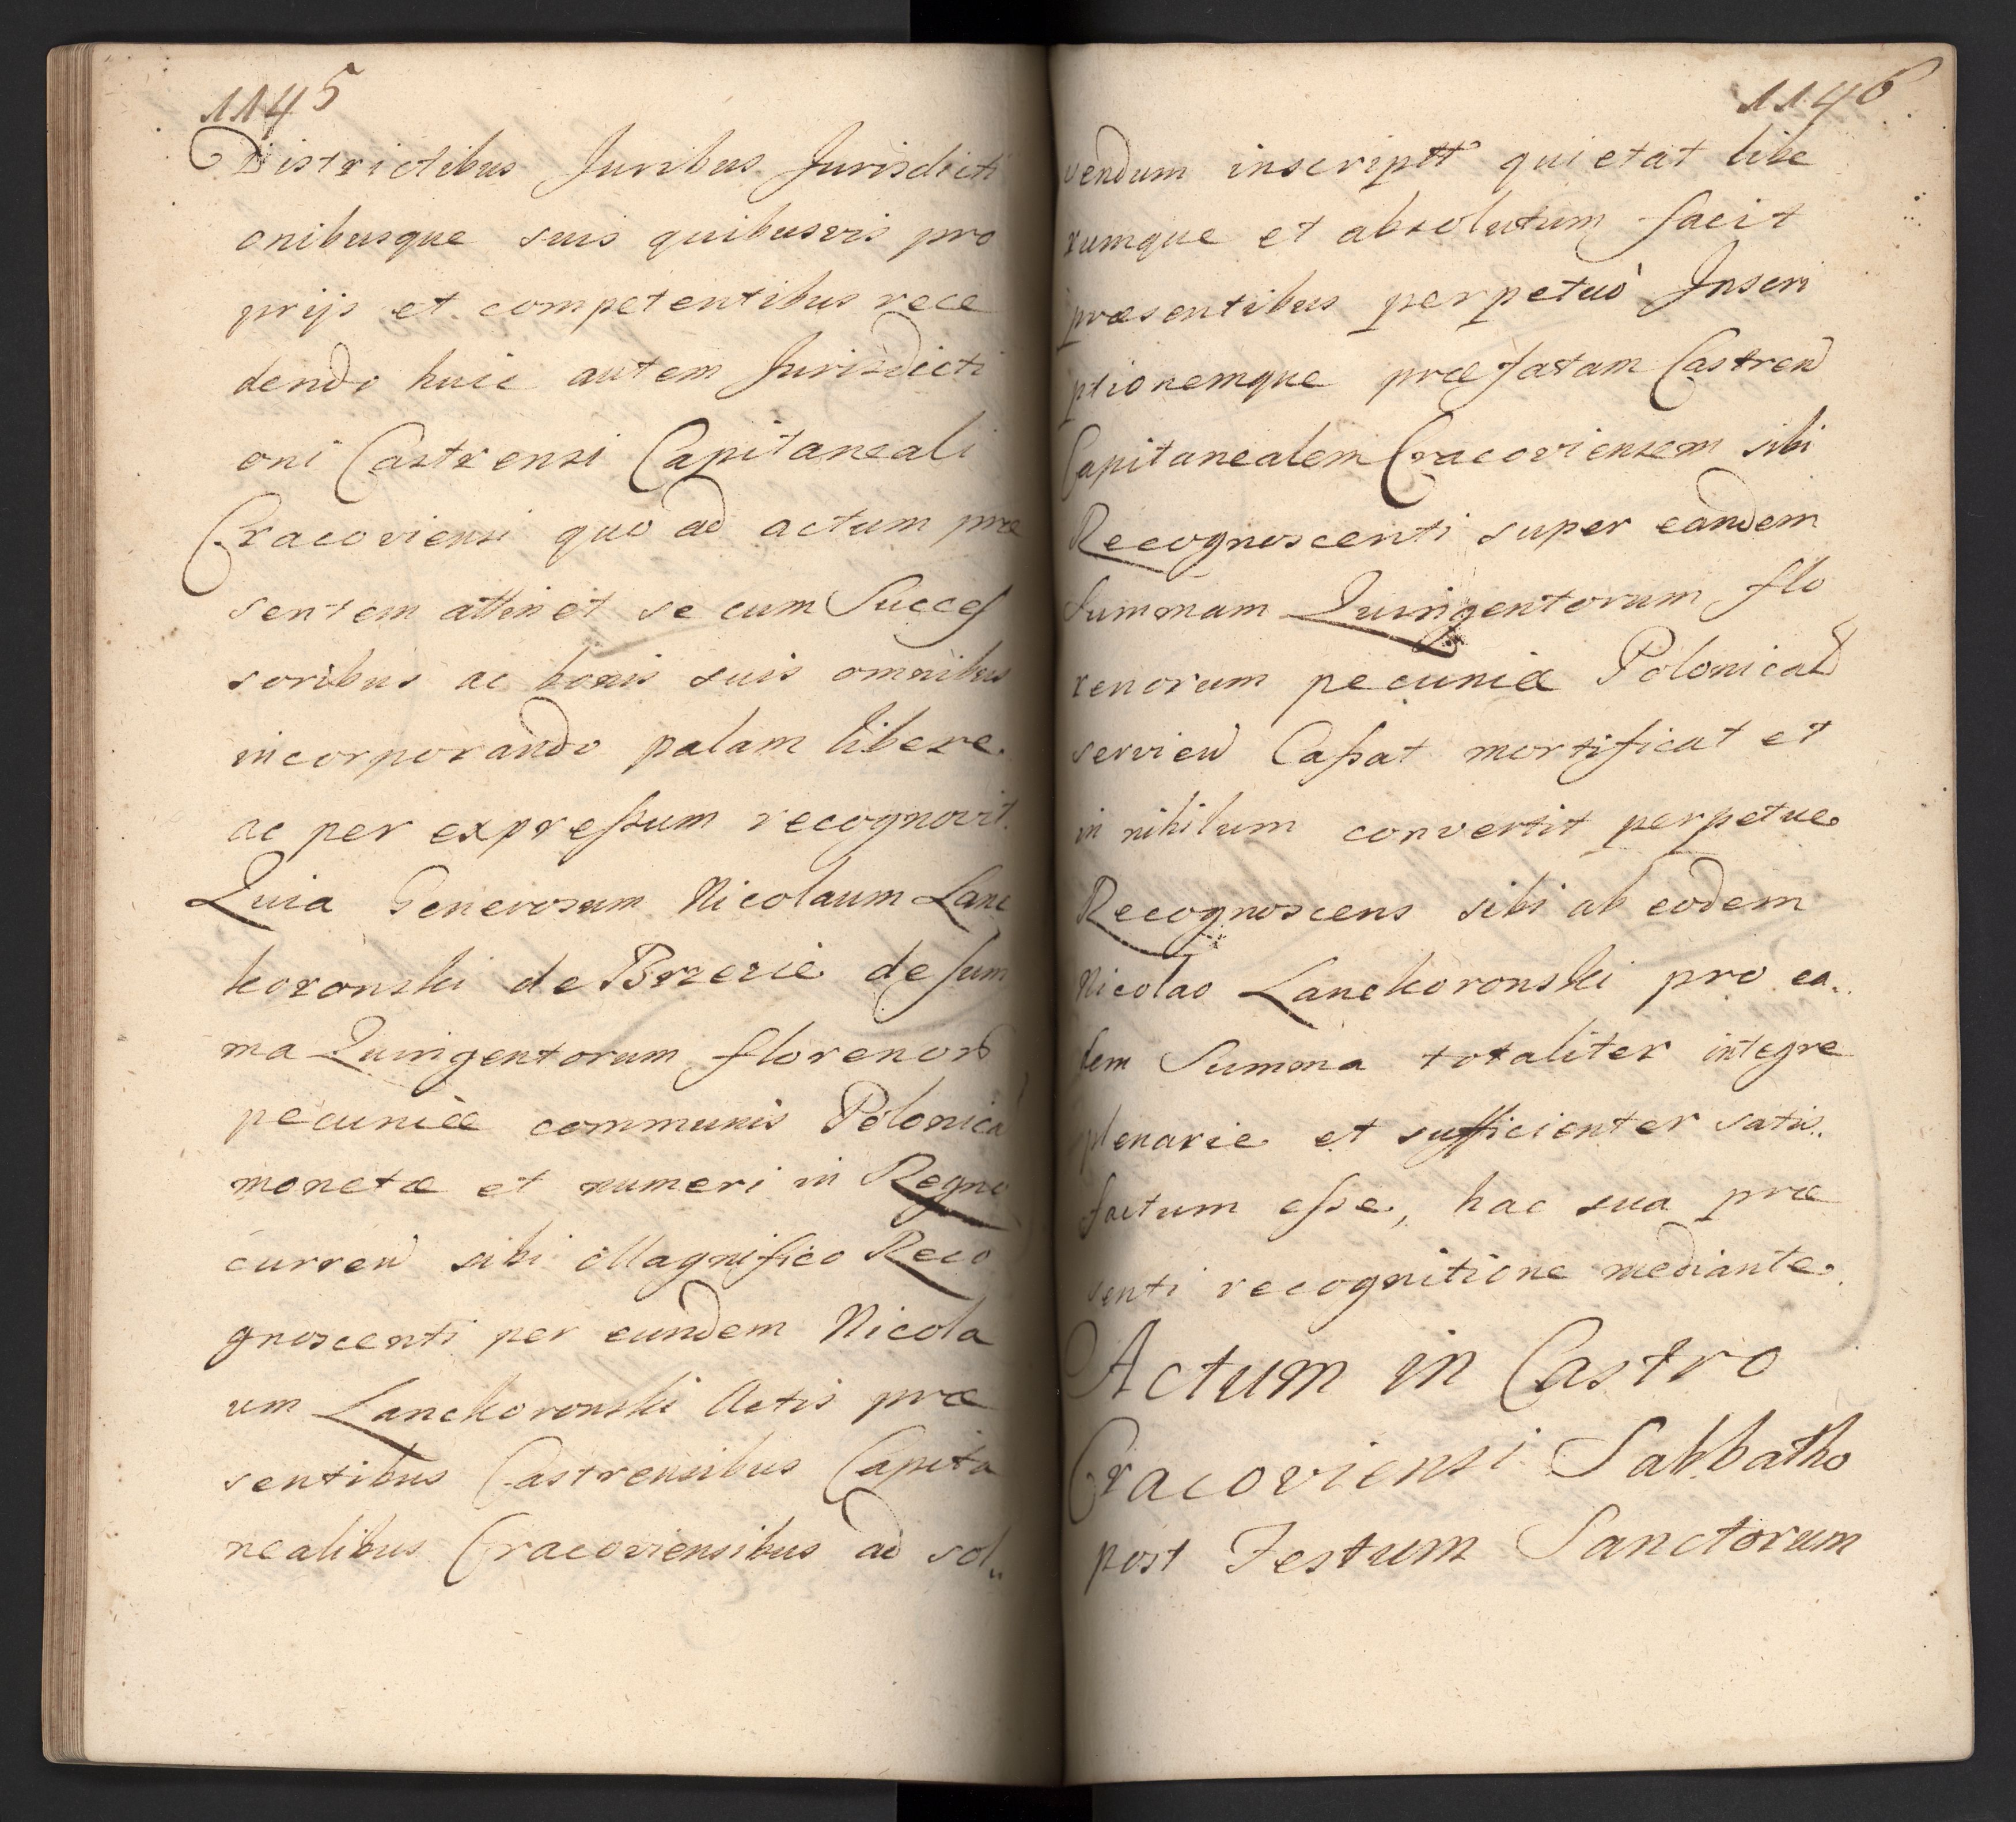 1145
Districtibus Juribus Jurisdicti
onibusque suis quibusvis pro
prijs et competentibus rece
dendo huic autem Jurisdicti
oni Castrensi Capitaneali
Cracoviensi quo ad actum præ
sentem attinet se cum Succeſ
soribus ac bonis suis omnibus
incorporando palam libere
ac per expreſsum recognovit.
Quia Generosum Nicolaum Lanc
koronski de Brzezie de sum
ma Quingentorum florenor
pecuniæ communis Polonica
monetæ et numeri in Regno
curren sibi Magnifico Reco
gnoscenti per eundem Nicola
um Lanckoronski Actis præ
sentibus Castrensibus Capita
nealibus Cracoviensibus ad sol„
1146
vendum inscriptt quietat libe
rumque et absolutum facit
præsentibus perpetuò Inscri
ptionemque præfatam Castren
Capitanealem Cracoviensem sibi
Recognoscenti super eandem
summam Quingentorum flo
renorum pecuniæ Polonical
servien Caſsat mortificat et
in nihilum convertit perpetue
Recognoscens sibi ab eodem
Nicolao Lanckoronski pro ea„
dem Summa totaliter integre
plenarie et sufficienter satis„
factum eſse, hac sua præ
senti recognitione mediante.
Actum in Castro
Cracoviensi Sabbatho
post Festum Sanctorum